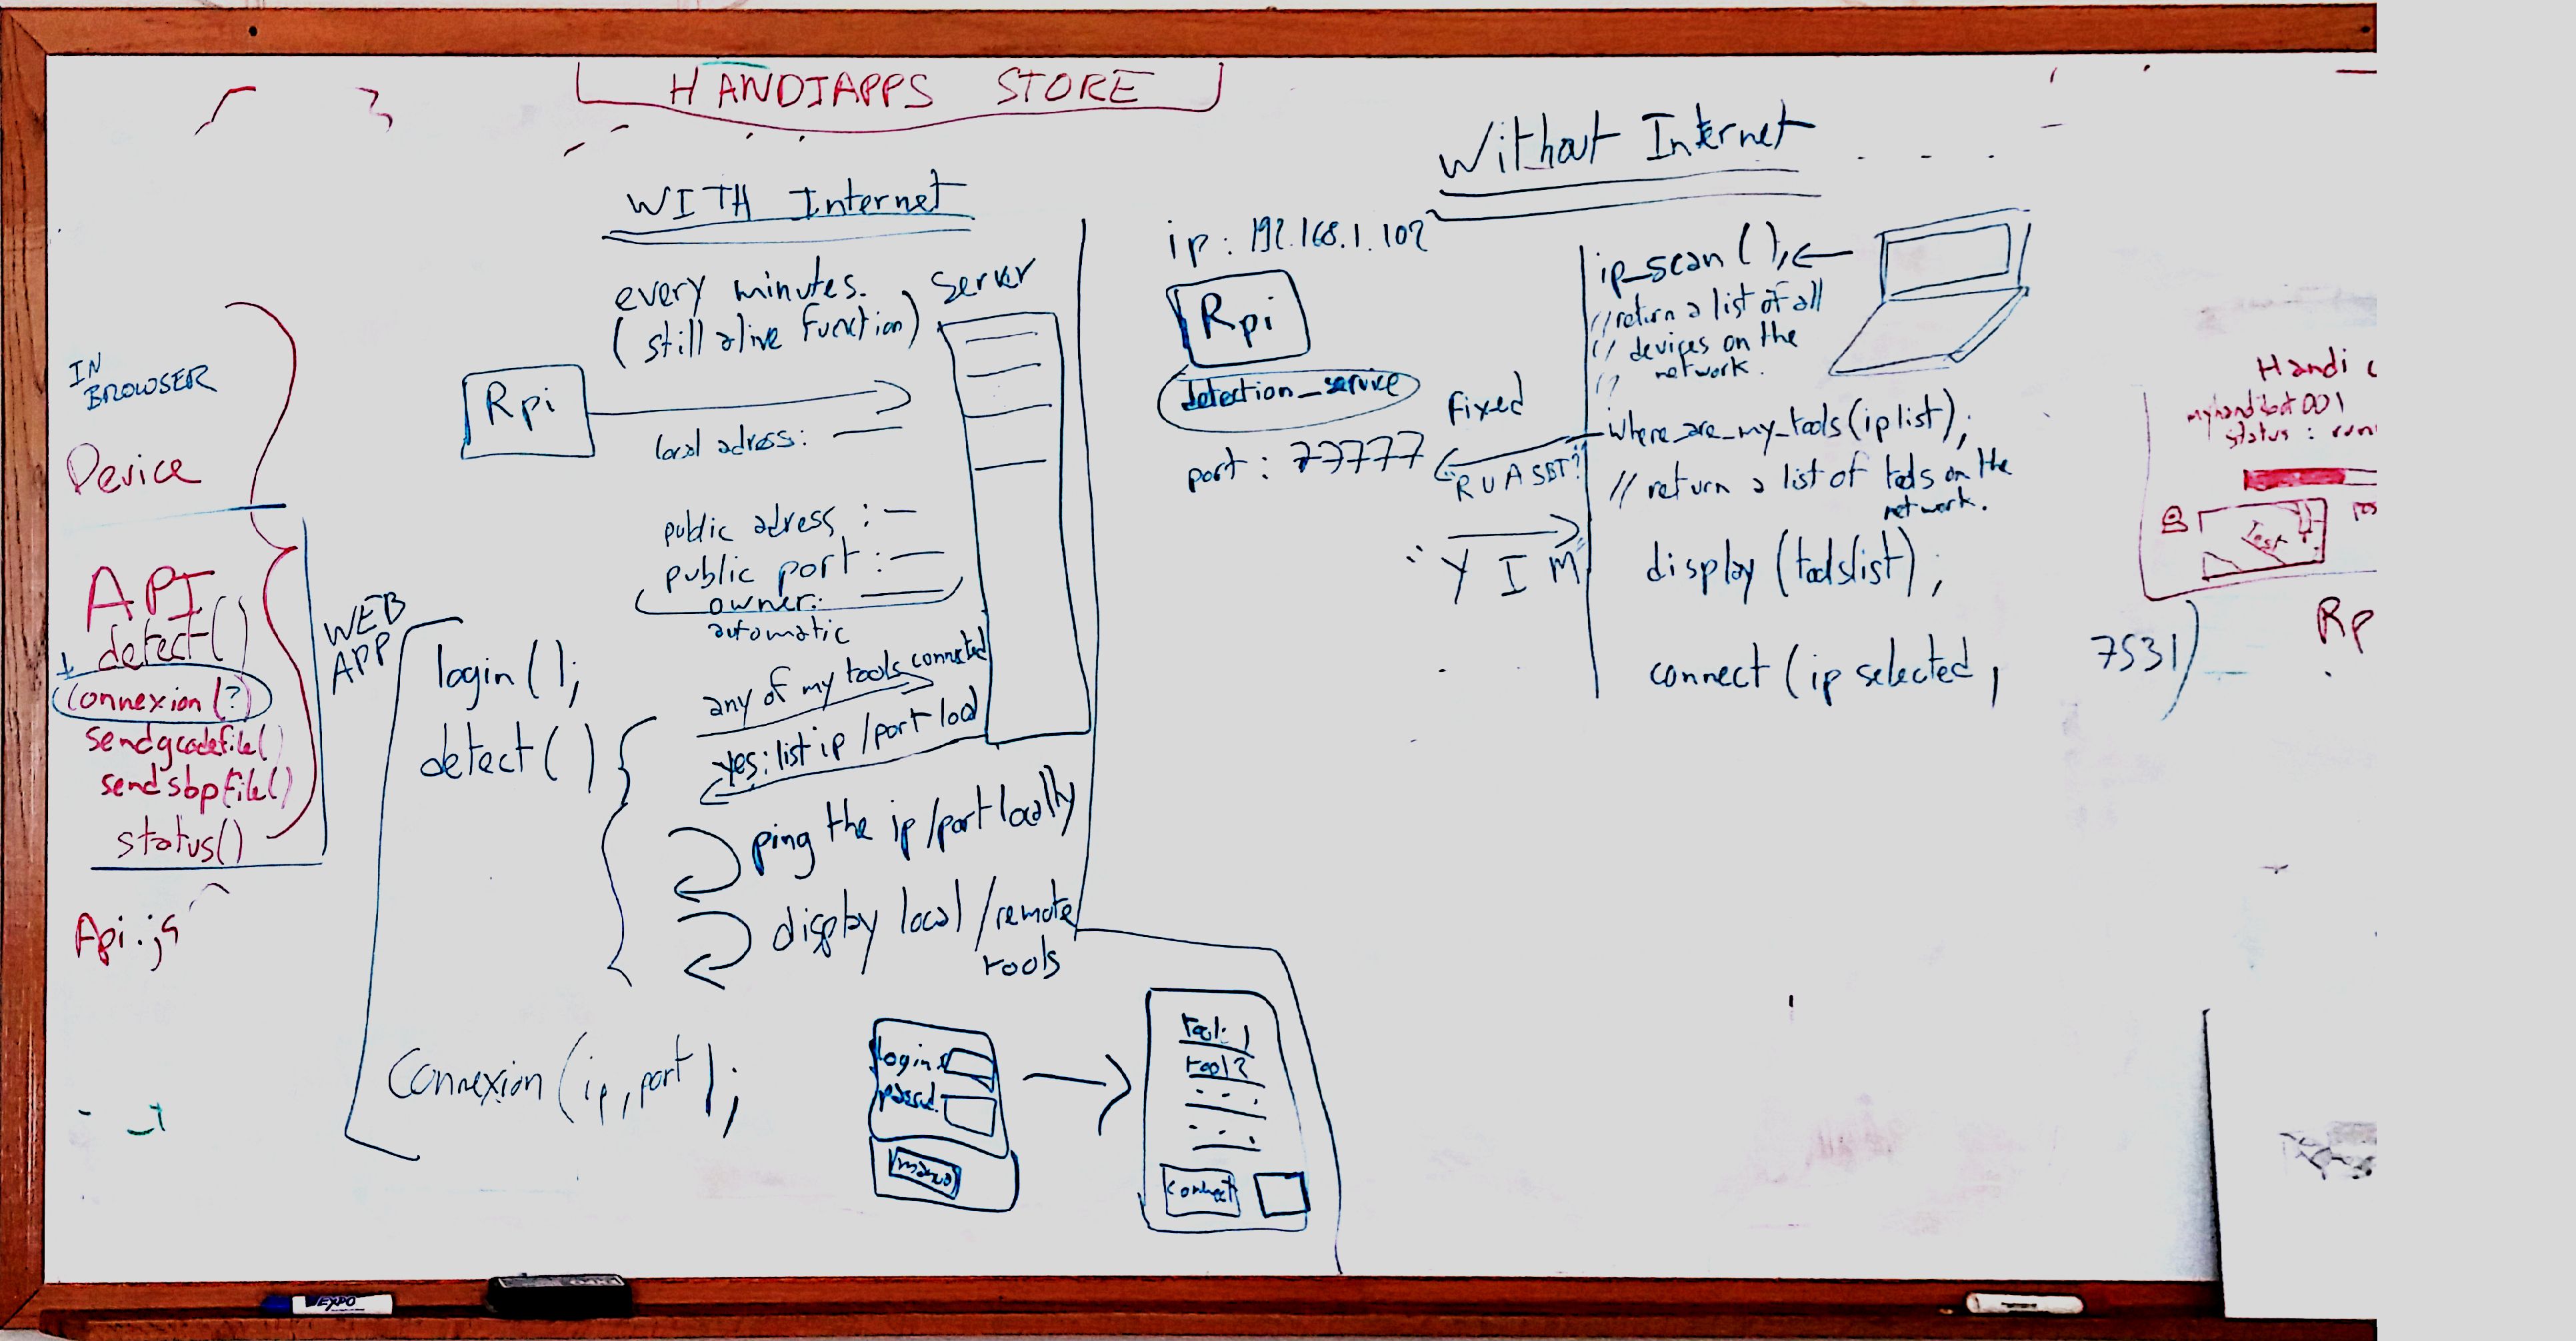 HANDIAPPS STORE
IN
BROWSER
Device
API
detect()
connexion(?)
sendgcodefile()
sendsbpfile()
status()
Api.js
WITH Internet
every minutes.
(still alive function)
Server
Rpi
local adress:
public adress :
public port :
owner:
automatic
WEB
APP
login();
detect()
any of my tools connected
yes: list ip/port local
ping the ip/port locally
display local/remote
tools
Connexion(ip, port);
login:
passwd.
tool 1
tool 2
connect
Without Internet
ip: 192.168.1.102
Rpi
detection_service
fixed
port: 77777
R U A SBT?
" Y I M "
ip_scan();
// return a list of all
// devices on the
// network.
where_are_my_tools(ip list);
// return a list of tools on the
network.
display (toolslist);
connect (ip selected, 7531)
Handi
myhandibot001
status : runn
Test
Rp
EXPO